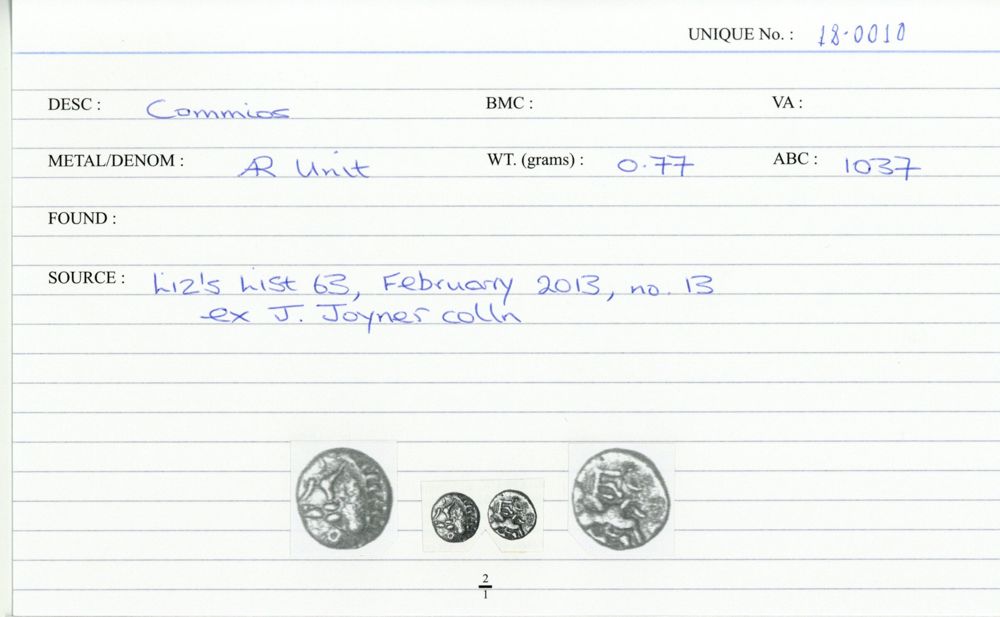 UNIQUE No. : 18·0010
DESC : Commios BMC : VA :
METAL/DENOM : AR Unit WT. (grams) : 0·77 ABC : 1037
FOUND :
SOURCE : Liz's List 63, February 2013, no. 13
ex J. Joyner colln
2
1